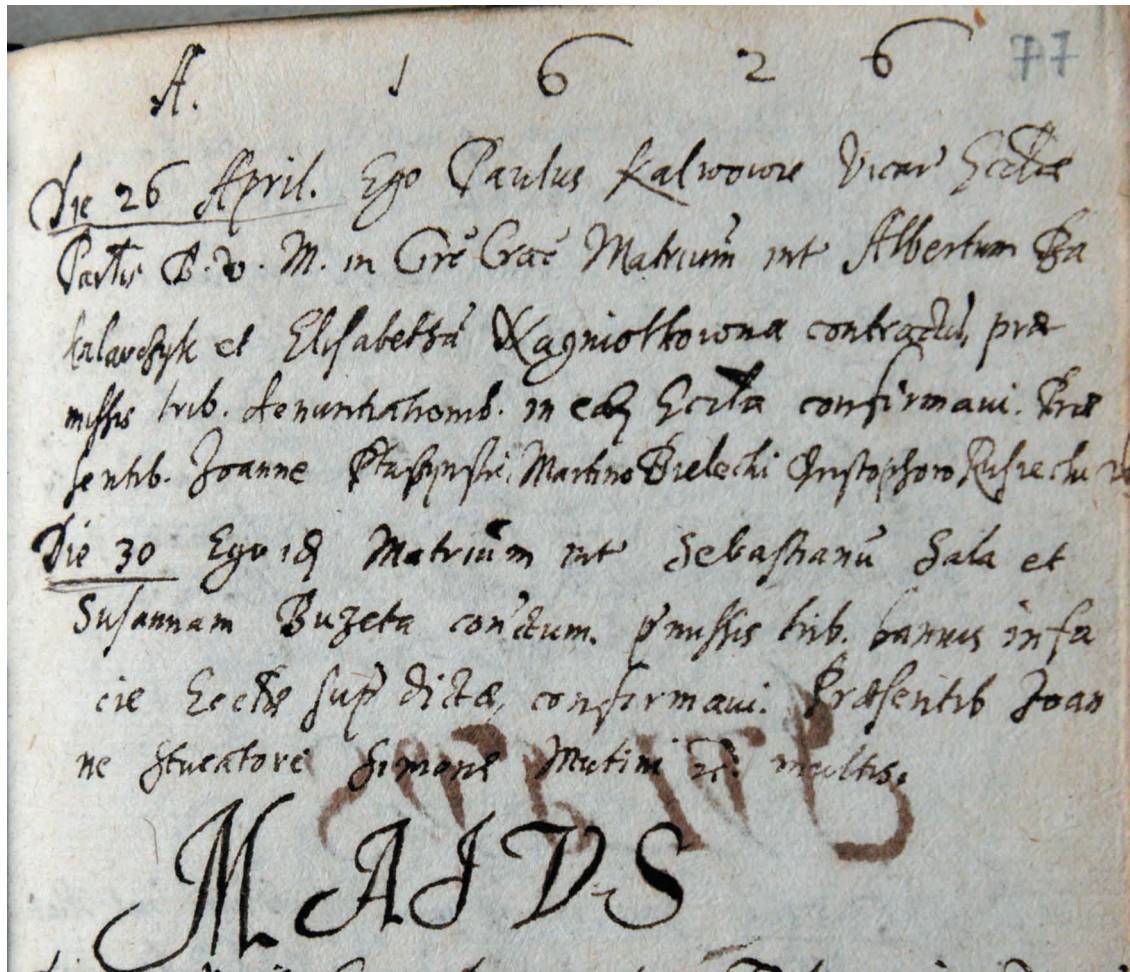 A. 1 6 2 6 77
Die 26 April. Ego Paulus Kalwowic Vicar Eccliæ
B. V. M. in Matrium int Albertum Ba
kalarchyk et Elisabethā Xagniotkowna contractū, præ
missis trib. denuntiationib. in Eccla confirmavi. Præ
sentib. Joanne Martino Bielechi Christophoro
Die 30 Ego Matrium int Sebastianū Sala et
Susannam Buzeta con̄ctum. p̄missis trib. bannis in fa
cie Eccliæ sup̄ dictæ, confirmavi. Præsentib Joan
ne Stucatore Simone Mutini multis.
MAIVS